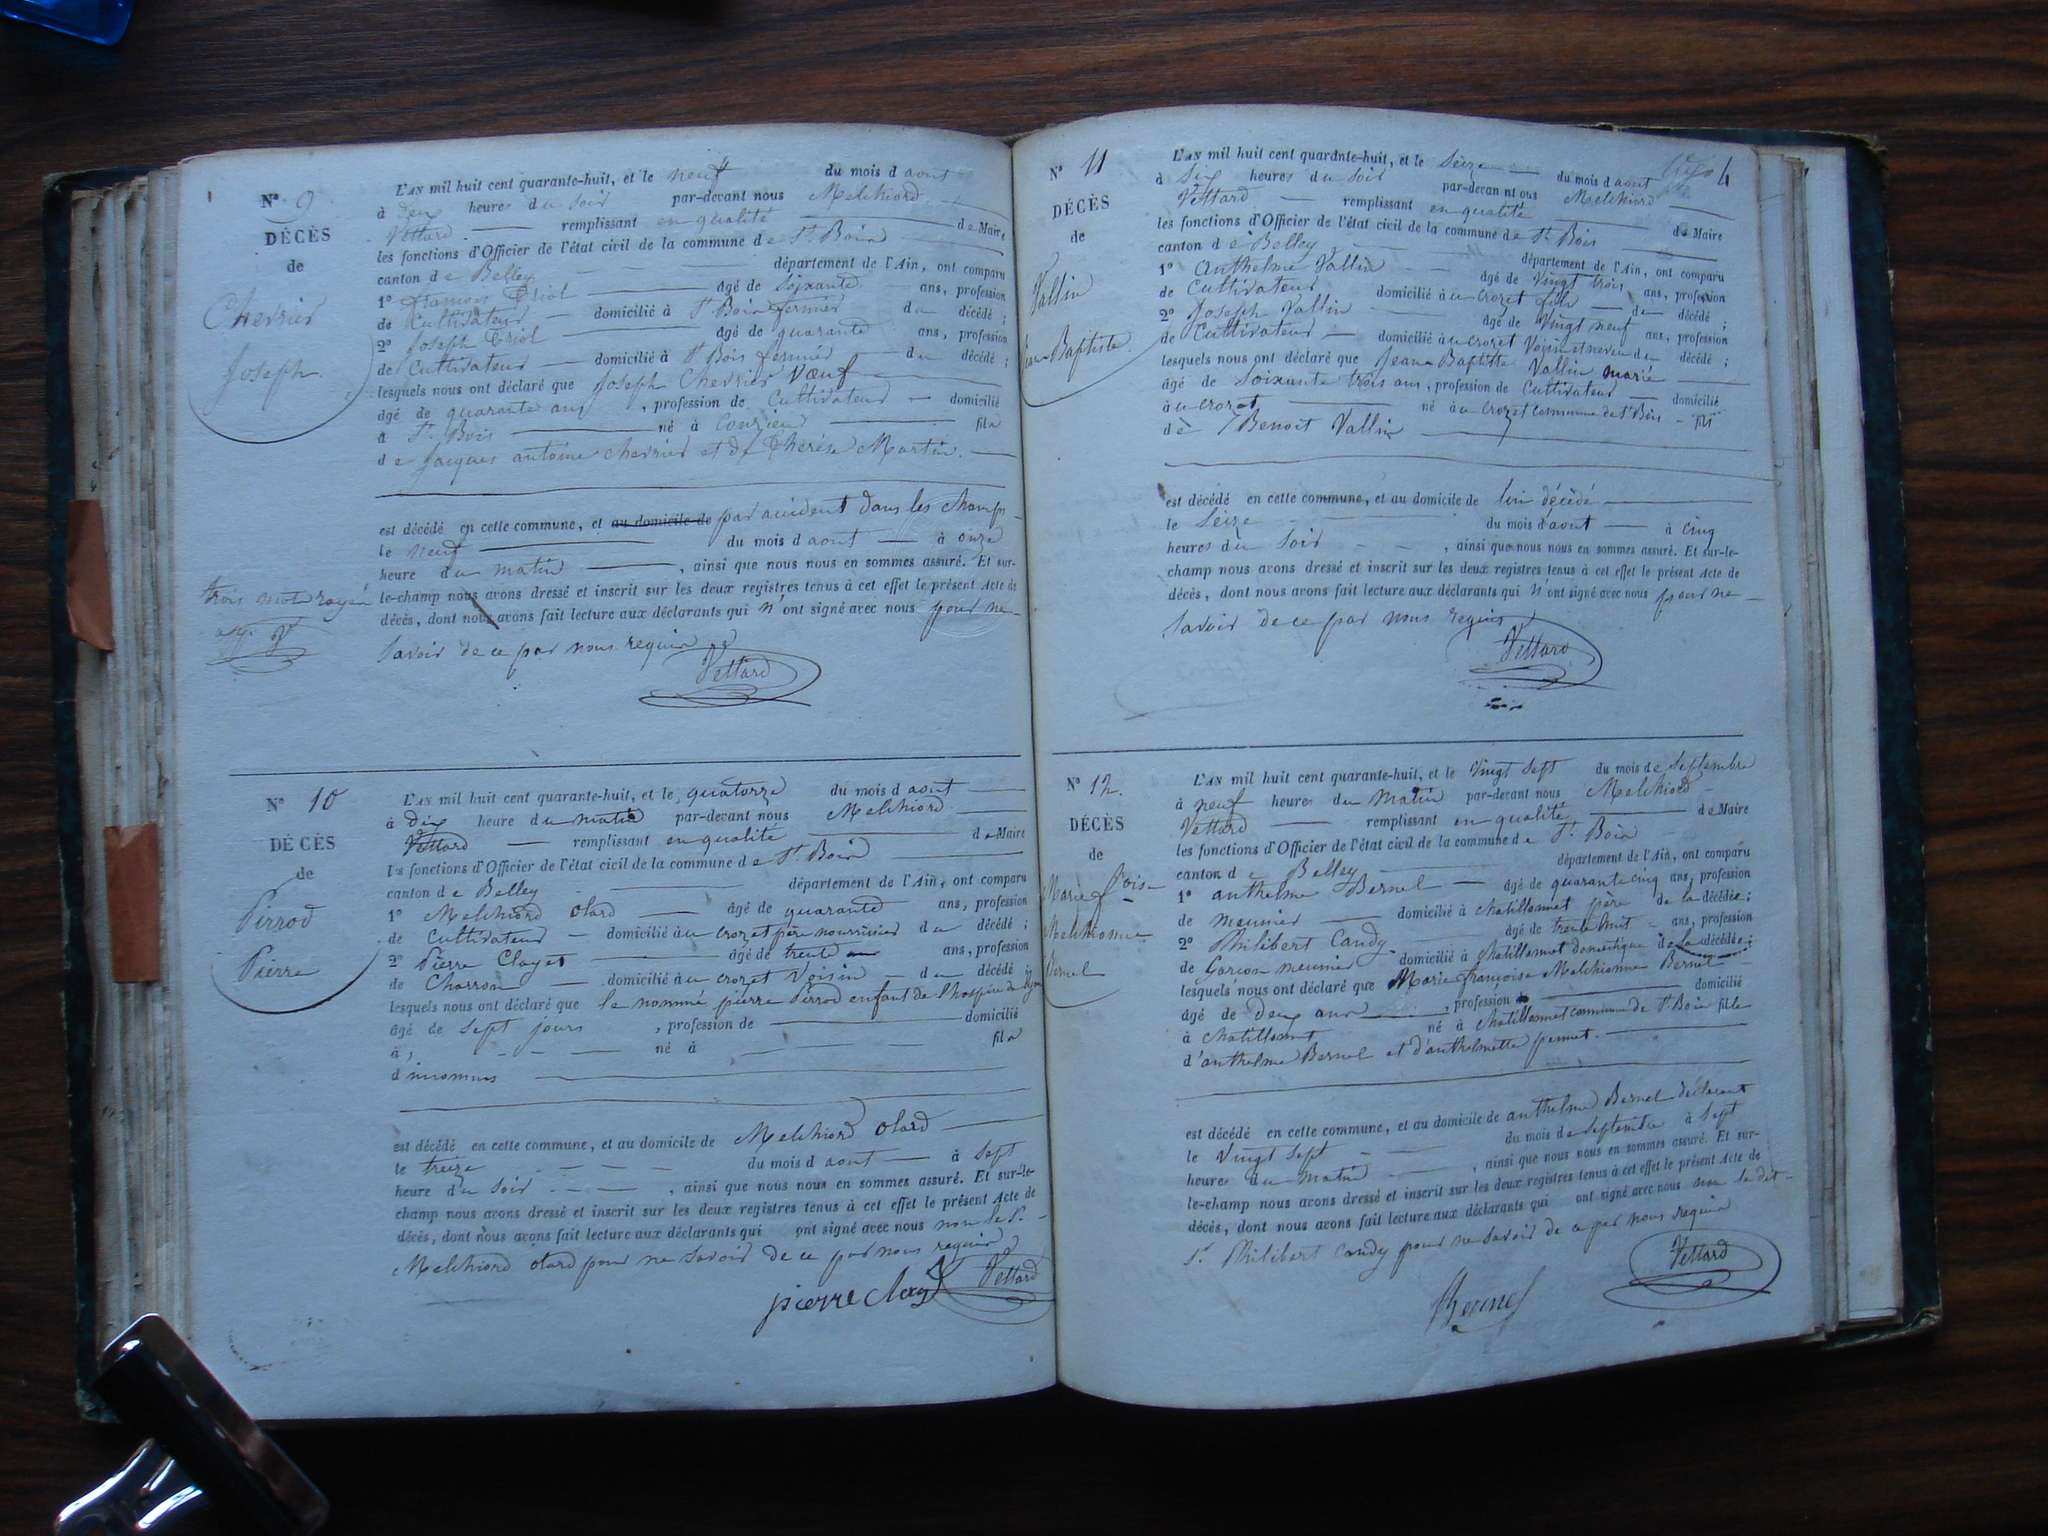 N° 9
DÉCÈS
de
Cherrier
Joseph.
L'AN mil huit cent quarante-huit, et le neuf du mois d aout
à deux heures du soir par-devant nous Melchiord
Vettard remplissant en qualité de Maire
les fonctions d'Officier de l'état civil de la commune de St Bois
canton de Belley département de l'Ain, ont comparu
1° françois âgé de Soixante ans, profession
de Cultivateur domicilié à St Bois fermier du décédé ;
2° Joseph âgé de quarante ans, profession
de Cultivateur domicilié à St Bois fermier du décédé ;
lesquels nous ont déclaré que Joseph Cherrier Vœuf
âgé de quarante ans, profession de Cultivateur domicilié
à St Bois né à fils
de Jacques antoine cherrier et de Thérèse Martin.
est décédé en cette commune, et au domicile de par accident dans les champs
le neuf du mois d aout à onze
heure du matin, ainsi que nous nous en sommes assuré. Et sur-
le-champ nous avons dressé et inscrit sur les deux registres tenus à cet effet le présent Acte de
décès, dont nous avons fait lecture aux déclarants qui n'ont signé avec nous pour ne
savoir de ce par nous requis
trois mots rayés
Vettard
N° 10
DÉCÈS
de
Perrod
Pierre
L'AN mil huit cent quarante-huit, et le quatorze du mois d aout
à dix heure du matin par-devant nous Melchiord
Vettard remplissant en qualité de Maire
les fonctions d'Officier de l'état civil de la commune de St Bois
canton de Belley département de l'Ain, ont comparu
1° Melchiord olard âgé de quarante ans, profession
de Cultivateur domicilié au crozet père nourricier du décédé ;
2° Pierre Clayet âgé de trente ans, profession
de Charron domicilié au crozet Voisin du décédé ;
lesquels nous ont déclaré que le nommé pierre Perrod enfant de l'hospice de
âgé de Sept jours, profession de domicilié
à, né à fils
d'inconnus
est décédé en cette commune, et au domicile de Melchiord olard
le treize du mois d aout à Sept
heure du soir, ainsi que nous nous en sommes assuré. Et sur-le-
champ nous avons dressé et inscrit sur les deux registres tenus à cet effet le présent Acte de
décès, dont nous avons fait lecture aux déclarants qui ont signé avec nous non le Sr
Melchiord olard pour ne savoir de ce par nous requis
pierre
Vettard
N° 11
DÉCÈS
de
Vallin
Jean Baptiste
L'AN mil huit cent quarante-huit, et le Seize du mois d aout
à Six heures du soir par-devant nous Melchiord
Vettard remplissant en qualité de Maire
les fonctions d'Officier de l'état civil de la commune de St Bois
canton de Belley département de l'Ain, ont comparu
1° Anthelme Vallin âgé de Vingt trois ans, profession
de Cultivateur domicilié au crozet fils du décédé ;
2° Joseph Vallin âgé de Vingt neuf ans, profession
de Cultivateur domicilié au crozet Voisin et neveu du décédé ;
lesquels nous ont déclaré que Jean Baptiste Vallin marié
âgé de Soixante trois ans, profession de Cultivateur domicilié
à au crozet né à au crozet commune de St Bois fils
de Benoit Vallin
est décédé en cette commune, et au domicile de lui décédé
le Seize du mois d'aout à cinq
heures du soir, ainsi que nous nous en sommes assuré. Et sur-le-
champ nous avons dressé et inscrit sur les deux registres tenus à cet effet le présent Acte de
décès, dont nous avons fait lecture aux déclarants qui n'ont signé avec nous pour ne
savoir de ce par nous requis
Vettard
N° 12.
DÉCÈS
de
Marie fçoise
Melchionne
Bernel
L'AN mil huit cent quarante-huit, et le Vingt Sept du mois de Septembre
à neuf heures du matin par-devant nous Melchiord
Vettard remplissant en qualité de Maire
les fonctions d'Officier de l'état civil de la commune de St Bois
canton de Belley département de l'Ain, ont comparu
1° anthelme Bernel âgé de quarante cinq ans, profession
de meunier domicilié à chatillonnet père de la décédée ;
2° Philibert Candy âgé de trente huit ans, profession
de Garçon meunier domicilié à chatillonnet domestique de la décédée ;
lesquels nous ont déclaré que Marie françoise Melchionne Bernel
âgé de deux ans, profession de domicilié
à chatillonnet né à chatillonnet commune de St Bois fille
d'anthelme Bernel et d'anthelmette
est décédé en cette commune, et au domicile de anthelme Bernel déclarant
le Vingt Sept du mois de septembre à Sept
heures du matin, ainsi que nous nous en sommes assuré. Et sur-
le-champ nous avons dressé et inscrit sur les deux registres tenus à cet effet le présent Acte de
décès, dont nous avons fait lecture aux déclarants qui ont signé avec nous non le dit
Sr Philibert Candy pour ne savoir de ce par nous requis
Vettard